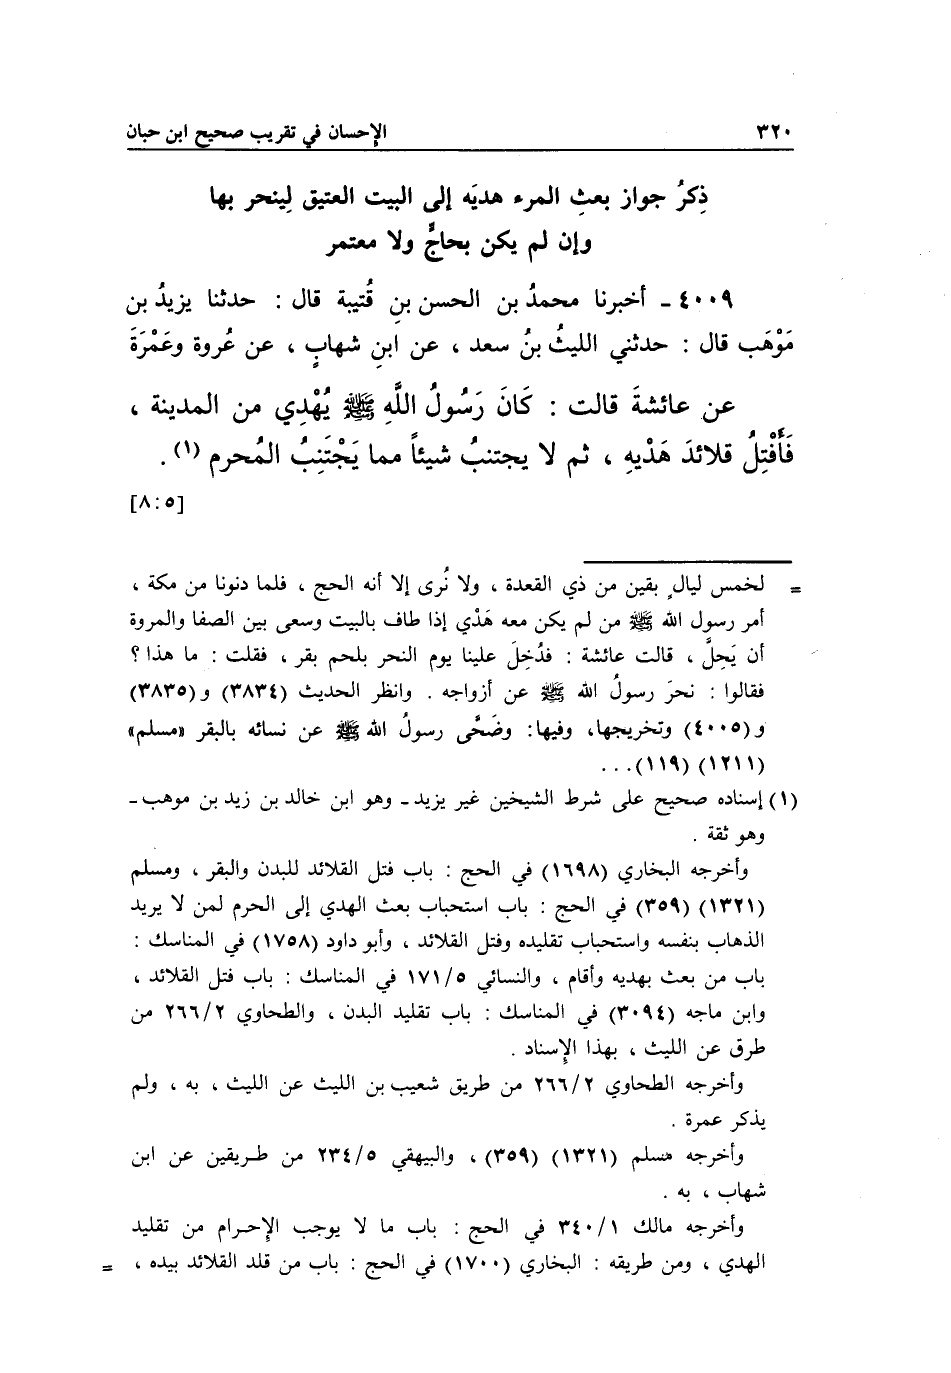 ٣٢٠ الإحسان في تقريب صحيح ابن حبان
ذِكرُ جواز بعثِ المرء هديَه إلى البيت العتيق لِينحر بها
وإن لم يكن بحاجٍّ ولا معتمر
٤٠٠٩ ـ أخبرنا محمدُ بن الحسن بنِ قُتيبة قال : حدثنا يزيدُ بن
مَوْهَب قال : حدثني الليثُ بنُ سعد ، عن ابنِ شهابٍ ، عن عُروة وعَمْرَةَ
عن عائشةَ قالت : كَانَ رَسُولُ اللَّهِ ﷺ يُهْدِي من المدينة ،
فَأَفْتِلُ قلائدَ هَدْيِهِ ، ثم لا يجتنبُ شيئاً مما يَجْتَنِبُ المُحرم (١) .
[٨:٥]
= لخمس ليالٍ بقين من ذي القعدة ، ولا نُرى إلا أنه الحج ، فلما دنونا من مكة ،
أمر رسول الله ﷺ من لم يكن معه هَدْي إذا طاف بالبيت وسعى بين الصفا والمروة
أن يَحِلَّ ، قالت عائشة : فدُخِلَ علينا يوم النحر بلحم بقر ، فقلت : ما هذا ؟
فقالوا : نحرَ رسولُ الله ﷺ عن أزواجه . وانظر الحديث (٣٨٣٤) و(٣٨٣٥)
و(٤٠٠٥) وتخريجها، وفيها: وضَحَّى رسولُ الله ﷺ عن نسائه بالبقر «مسلم»
(١٢١١) (١١٩)...
(١) إسناده صحيح على شرط الشيخين غير يزيد ـ وهو ابن خالد بن زيد بن موهب ـ
وهو ثقة .
وأخرجه البخاري (١٦٩٨) في الحج : باب فتل القلائد للبدن والبقر ، ومسلم
(١٣٢١) (٣٥٩) في الحج : باب استحباب بعث الهدي إلى الحرم لمن لا يريد
الذهاب بنفسه واستحباب تقليده وفتل القلائد ، وأبو داود (١٧٥٨) في المناسك :
باب من بعث بهديه وأقام ، والنسائي ١٧١/٥ في المناسك : باب فتل القلائد ،
وابن ماجه (٣٠٩٤) في المناسك : باب تقليد البدن ، والطحاوي ٢٦٦/٢ من
طرق عن الليث ، بهذا الإسناد .
وأخرجه الطحاوي ٢٦٦/٢ من طريق شعيب بن الليث عن الليث ، به ، ولم
يذكر عمرة .
وأخرجه مسلم (١٣٢١) (٣٥٩) ، والبيهقي ٢٣٤/٥ من طريقين عن ابن
شهاب ، به .
وأخرجه مالك ٣٤٠/١ في الحج : باب ما لا يوجب الإحرام من تقليد
الهدي ، ومن طريقه : البخاري (١٧٠٠) في الحج : باب من قلد القلائد بيده ، =